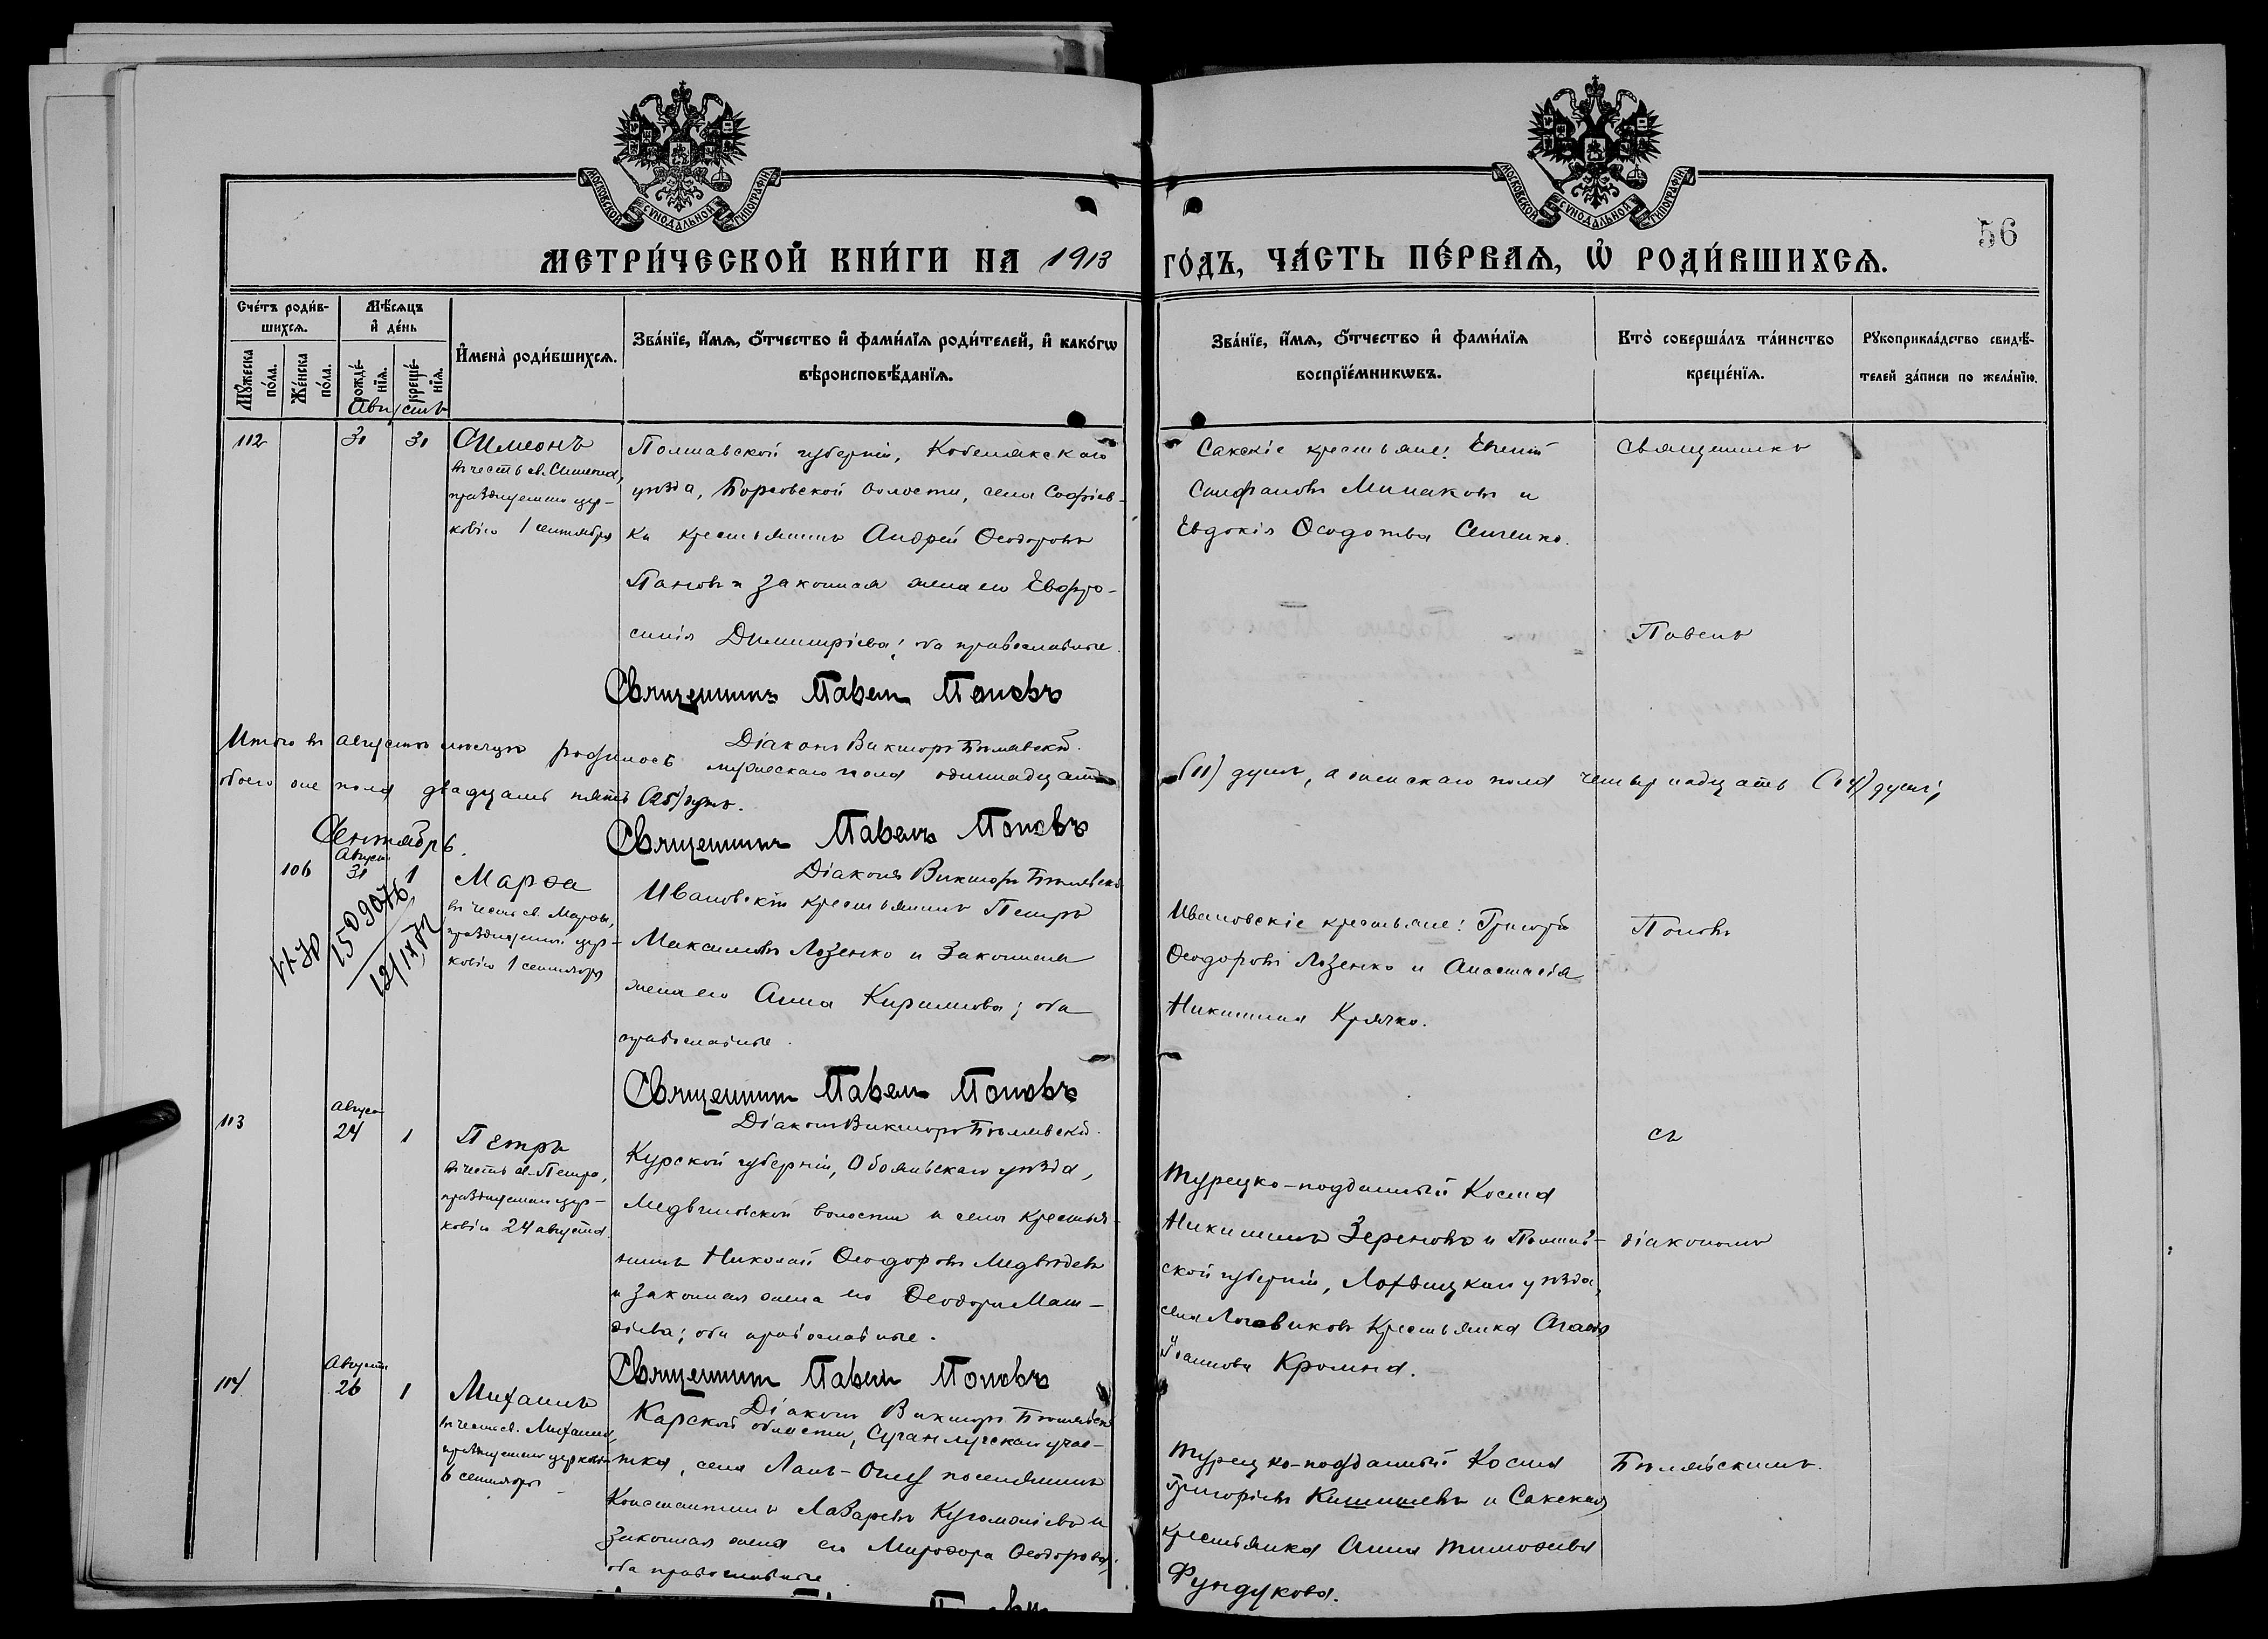 МОСКОВСКОЙ СѴНОДАЛЬНОЙ ТИПОГРАФІИ
МОСКОВСКОЙ СѴНОДАЛЬНОЙ ТИПОГРАФІИ
56
МЕТРИ́ЧЕСКОЙ КНИ́ГИ НА 1913 ГО́ДЪ, ЧА́СТЬ ПЕ́РВАѦ, Ѡ҆ РОДИ́ВШИХСѦ.
Сче́тъ роди́в-
шихсѧ.
Мѣ́сѧцъ
и҆ де́нь
Мꙋ́жеска
по́ла.
Же́нска
по́ла.
рожде́-
нїѧ.
креще́-
нїѧ.
И҆мена̀ роди́вшихсѧ.
Зва́нїе, и҆́мѧ, ѻ҆́тчество и҆ фами́лїѧ роди́телей, и҆ како́гѡ
вѣроисповѣ́данїѧ.
Зва́нїе, и҆́мѧ, ѻ҆́тчество и҆ фами́лїѧ
воспрїе́мникѡвъ.
Кто̀ соверша́лъ та́инство
креще́нїѧ.
Рꙋкоприкла́дство свидѣ́-
телей за́писи по жела́нїю.
Августъ
112 31 31 Симеонъ
въ честь св. Симеона,
празднуемаго цер-
ковію 1 сентября
Полтавской губерніи, Кобелякскаго
уѣзда, волости, села Софіев-
ки крестьянинъ Андрей Ѳеодоровъ
Пановъ и законная жена его Евфро-
синія Димитріева; оба православные.
Священникъ Павелъ Поповъ
Діаконъ Викторъ Бѣлявскій.
Сакскіе крестьяне: Евгеній
Минаковъ и
Евдокія Сенченко.
Священникъ
Павелъ
Итого въ августѣ мѣсяцѣ родилось мужескаго пола одиннадцать (11) душъ, а женскаго пола четырнадцать (14) душъ;
обоего же пола двадцать пять (25) душъ.
Священникъ Павелъ Поповъ
Діаконъ Викторъ Бѣлявскій
Сентябрь.
106 Август. 31 1 Марѳа
въ честь св. Марѳы,
празднуемой цер-
ковію 1 сентября
1509076
Ивановскій крестьянинъ Петръ
Максимовъ Лозенко и законная
жена его Анна Кириллова; оба
православные.
Священникъ Павелъ Поповъ
Діаконъ Викторъ Бѣлявскій.
Ивановскіе крестьяне: Григорій
Ѳеодоровъ Лозенко и Анастасія
Никитина Крячко.
Поповъ
113 Август 24 1 Петръ
въ честь св. Петра,
празднуемаго цер-
ковію 24 августа.
Курской губерніи, Обоянскаго уѣзда,
волости и села крестья-
нинъ Николай Ѳеодоровъ Медвѣдевъ
и законная жена его Ѳеодора Мат-
ѳіева; оба православные.
Священникъ Павелъ Поповъ
Діаконъ Викторъ Бѣлявскій
Турецко-подданный Косма
Никитинъ Зереновъ и Полтав-
ской губерніи, Лохвицкаго уѣзда,
села крестьянка Агаѳія
Іоаннова
съ
діакономъ
114 Августъ 26 1 Михаилъ
въ честь св. Михаила,
празднуемаго церковію
6 сентября
Карской области, учас-
тка, села поселянинъ
Константинъ Лазаревъ и
законная жена его Ѳеодорова;
оба православные.
Турецко-подданный Косма
Григорьевъ и Сакская
крестьянка Анна Тимоѳеева
Фундукова.
Бѣлявскимъ.